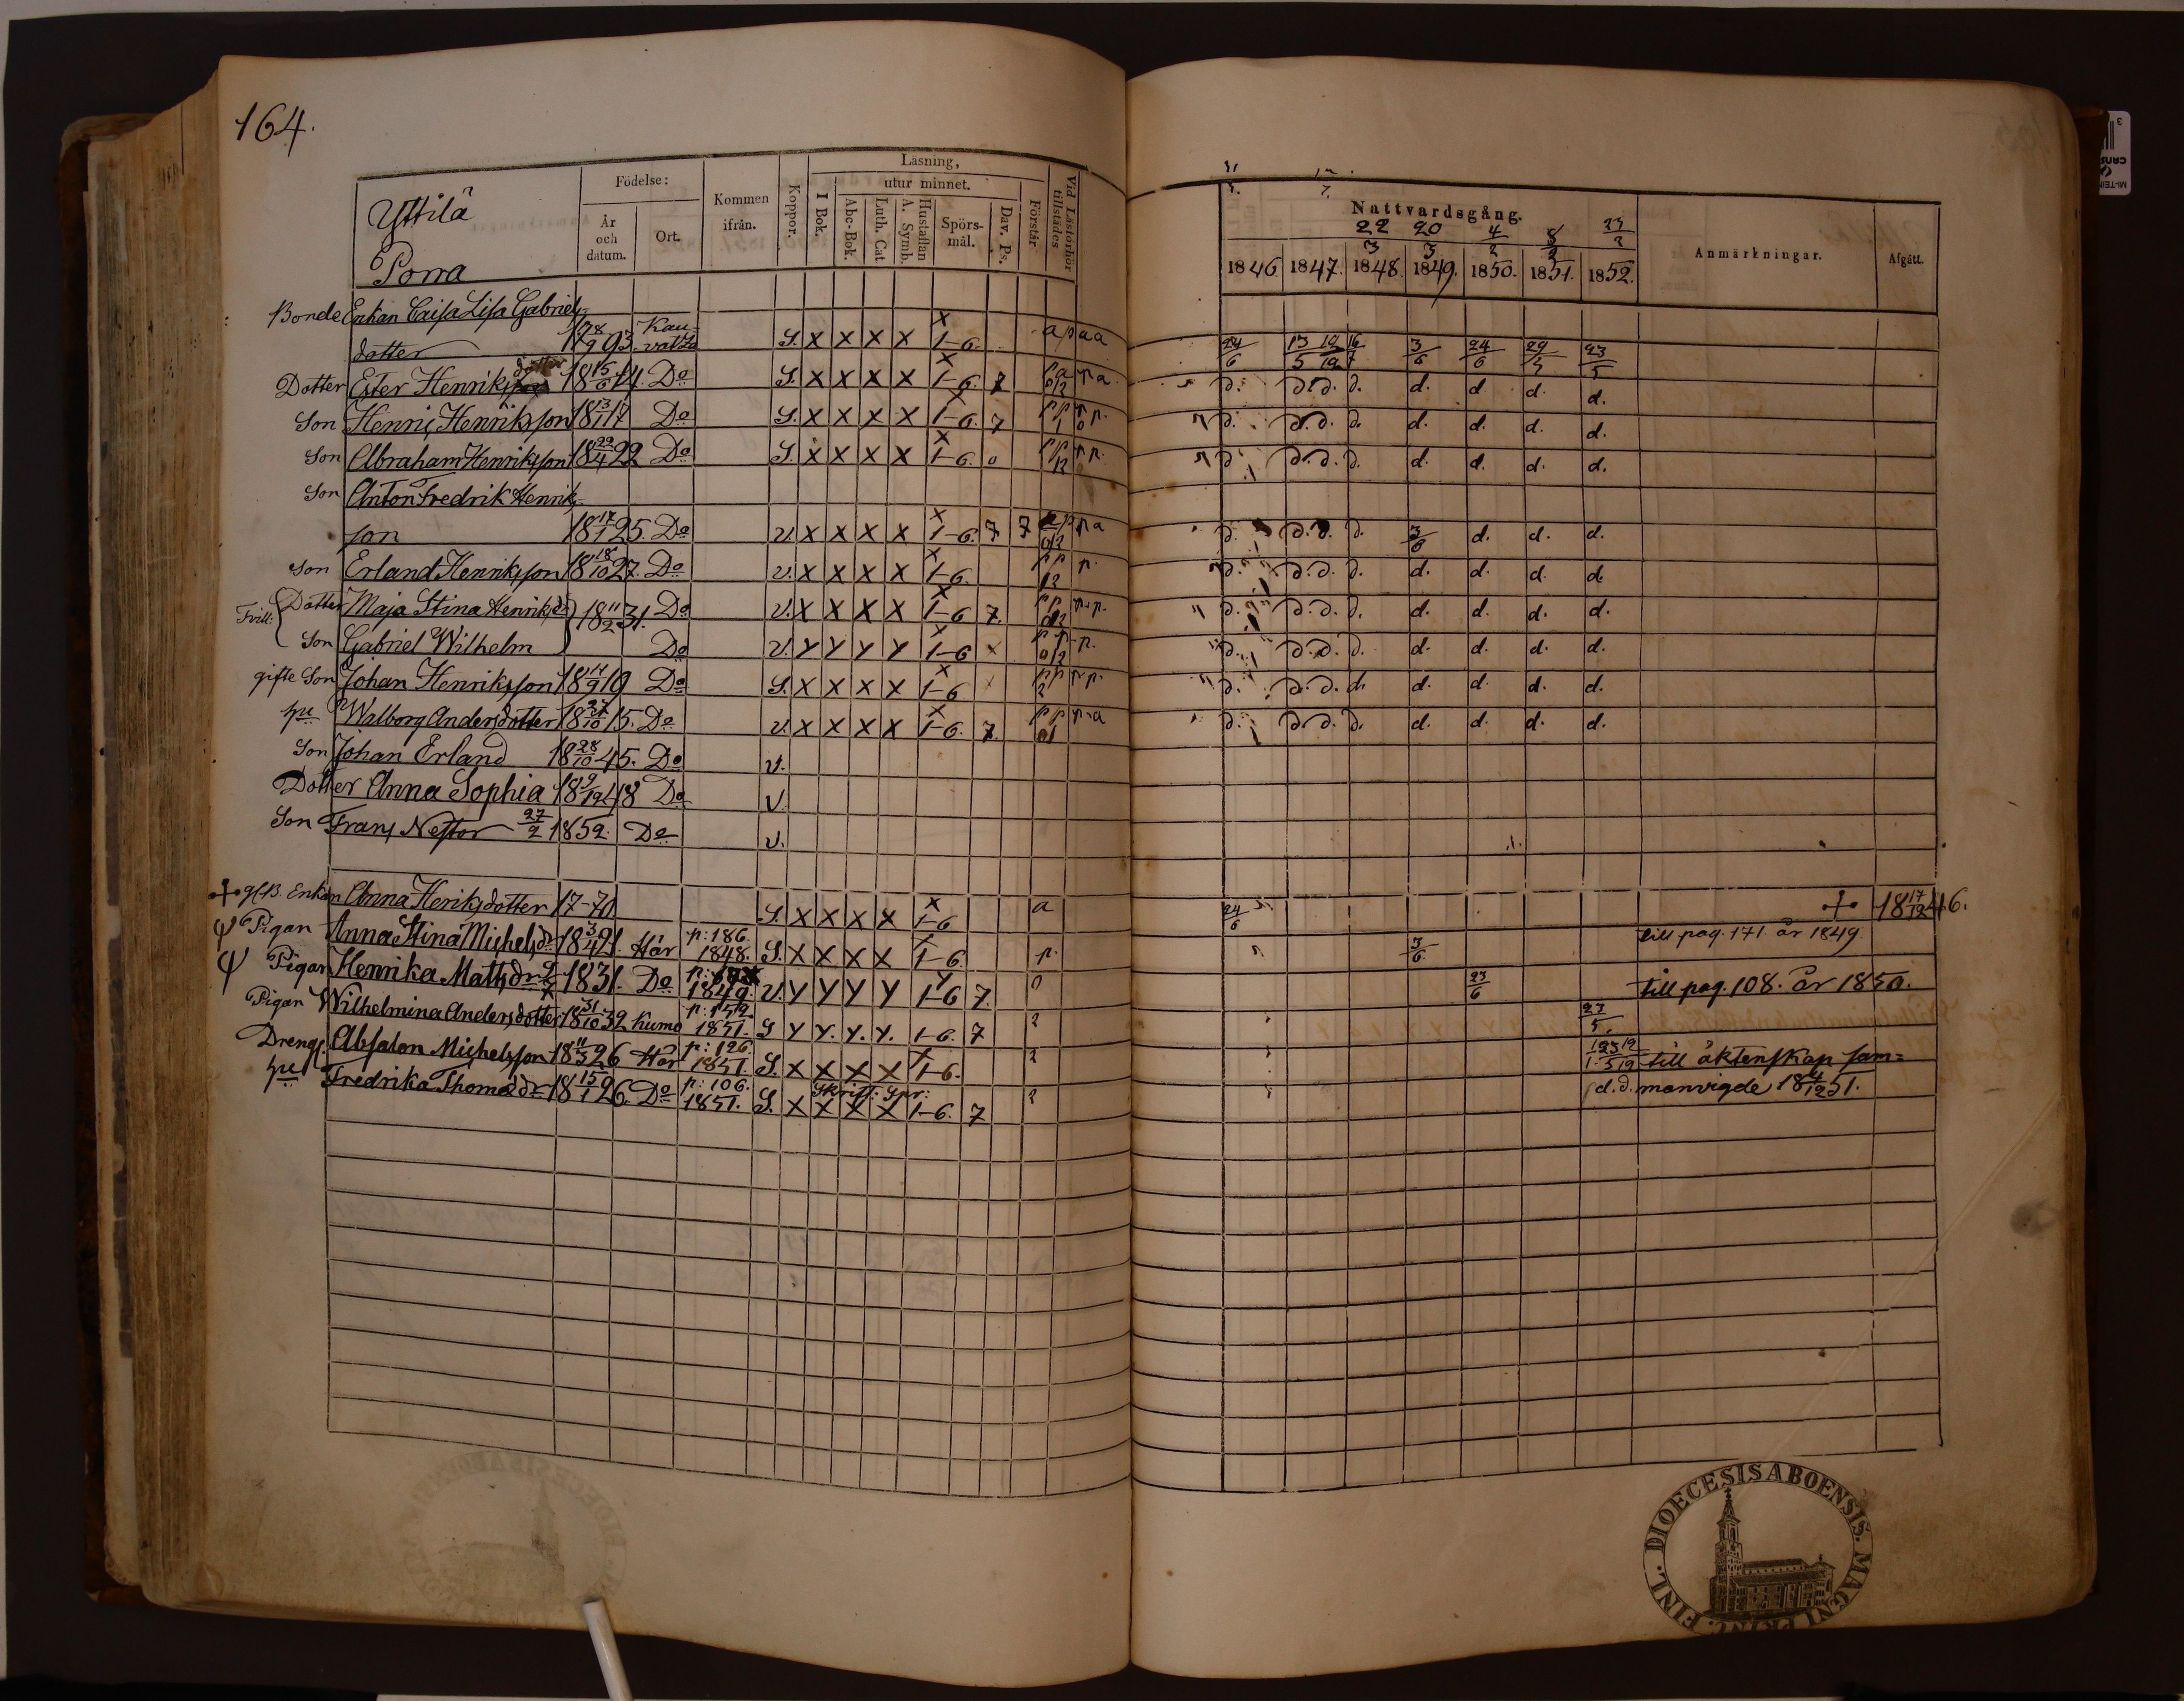 164.
Yttilä
Porra
Födelse:
År och datum.
Ort.
Kommen ifrån.
Koppor.
Läsning,
I Bok.
utur minnet.
Abc-Bok.
Luth. Cat.
A. Symb.
Hustaflan
Spörs-mål.
Dav. Ps.
Förstår
Vid Läsförhör tillstädes
Nattvardsgång.
22/3 20/3 4/2 23/2
1846 1847. 1848. 1849. 1850. 1851. 1852.
Anmärkningar.
Afgått.
Bonde Enkan Caisa Lisa Gabriels-
dotter 17 8/9 93. Kau-vatsa S. X X X X X 1-6. a p a a 24/6 3/6 24/6 29/5 23/5
Dotter Ester Henriks dotter 18 15/6 14. Do S. X X X X X 1-6. 7 d. d. d. d. d. d. d. d.
Son Henric Henriksson 18 17 Do S. X X X X X 1-6. 7 d. d. d. d. d. d. d. d.
Son Abraham Henriksson 18 22/4 22 Do S. X X X X X 1-6. 0 d. d. d. d. d. d. d. d.
Son Anton Fredrik Henriks-
son 18 17/1 25. Do v. X X X X X 1-6. 7 7 d. d. d. d. 3/6 d. d. d.
Son Erland Henriksson 18 18/10 27. Do v. X X X X X 1-6. d. d. d. d. d. d. d. d.
Tvill: Dotter Maja Stina Henriksdr 18 11/2 31. Do v. X X X X X 1-6 7. d. d. d. d. d. d. d. d.
Son Gabriel Wilhelm Do v. Y Y Y Y X 1-6 x d. d. d. d. d. d. d. d.
gifte Son Johan Henriksson 18 14/9 19 Do S. X X X X X 1-6 d. d. d. d. d. d. d. d.
hu Walborg Andersdotter 18 27/10 15. Do v. X X X X X 1-6. 7. d. d. d. d. d. d. d. d.
Son Johan Erland 18 28/10 45. Do v.
Dotter Anna Sophia 18 9/12 48 Do v.
Son Frans Nestor 27/2 1852. Do v.
Enkan Anna Heriksdotter 17-70 S. X X X X X 1-6 a 24/6 18 17/12 46.
Pigan Anna Stina Michelsdr 18 3/4 21. Här p: 186. 1848. S. X X X X 1-6 p. 3/6 till pag. 171 år 1849.
Pigan Henrika Matsdr 1831. Do 1849. v. Y Y Y Y Y 1-6 7. 0 23/6 till pag. 108. år 1850.
Pigan Wilhelmina Andersdotter 18 31/10 32 Kumo 1851. S Y Y. Y. Y. 1-6. 7 2 27/5.
Drengs. Absalon Michelsson 18 11/3 26 Här p: 126. 1851. S. X X X X X 1-6. 2 till äktenskap sam-
hu Fredrika Thomædr 18 15/1 26. Do p: 106. 1851. S. X X X X 1-6. 7 Skrift: Spr: 2 d. d. manvigde 18 4/12 51.
DIOECESIS ABOENSIS. MAGNI PRINC. FINL.